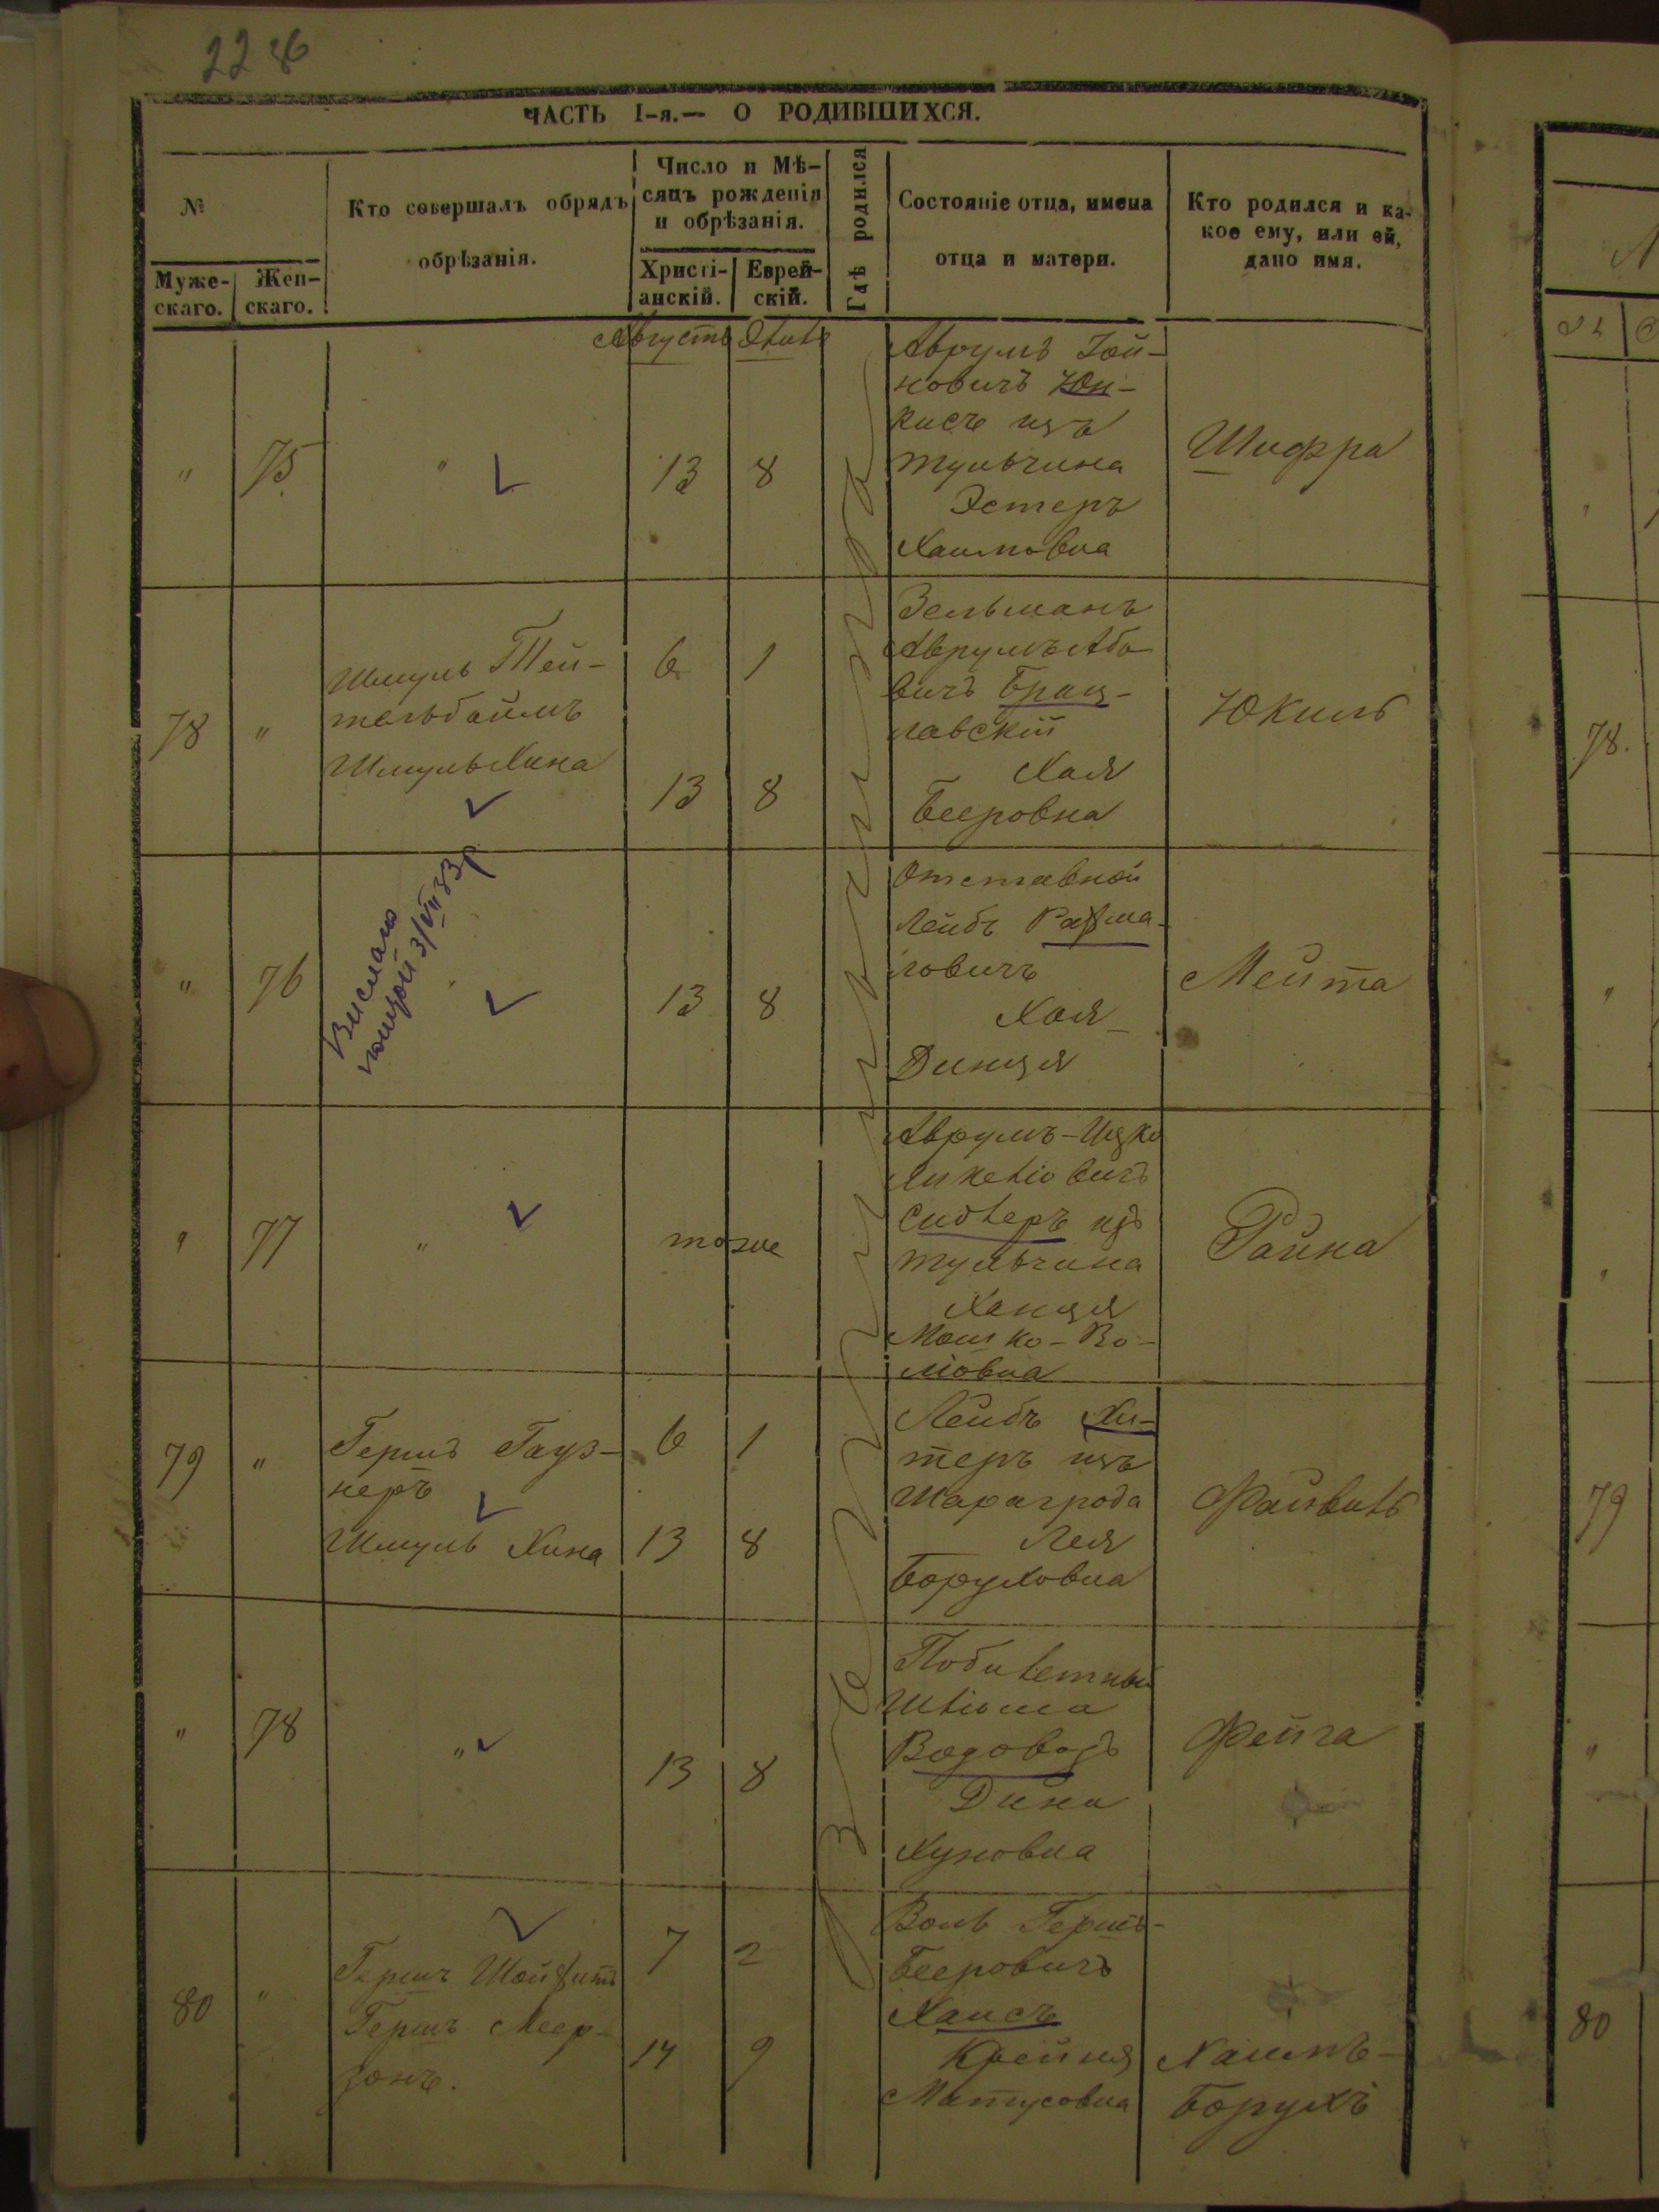 228
ЧАСТЬ I-я.— О РОДИВШИХСЯ.
№
Муже-
скаго.
Жен-
скаго.
Кто совершалъ обрядъ
обрѣзанія.
Число и Мѣ-
сяцъ рожденія
и обрѣзанія.
Христі-
анскій.
Еврей-
скій.
Гдѣ родился
Состояніе отца, имена
отца и матери.
Кто родился и ка-
кое ему, или ей,
дано имя.
Августъ
" 75 " 13 8
Аврумъ Іой-
новичъ Юн-
кисъ изъ
Тульчина
Эстеръ
Хаимовна
Шифра
78 "
Шмуль Тей-
тельбаймъ
Шмуль Хина
6 1
13 8
Зельманъ
Аврумъ Або
вичъ Брац-
лавскій
Хая
Бееровна
Юкиль
" 76 " 13 8
Отставной
Лейбъ
ловичъ
Хая-
Динця
Мейта
" 77 " тоже
Аврумъ-Ицко
изъ
Тульчина
Ханця
Мошко-Во-
ловна
Райна
79 "
Гершъ Гауз-
неръ
Шмуль Хина
6 1
13 8
Лейбъ Хи-
теръ изъ
Шараграда
Лея
Боруховна
" 78 " 13 8
Водовозъ
Дина
Хуновна
Фейга
80 "
Гершъ
Гершъ Меер-
зонъ.
7 2
14 9
Воль Гершъ-
Бееровичъ
Хаисъ
Крейня
Матусовна
Хаимъ-
Борухъ
78.
79
80